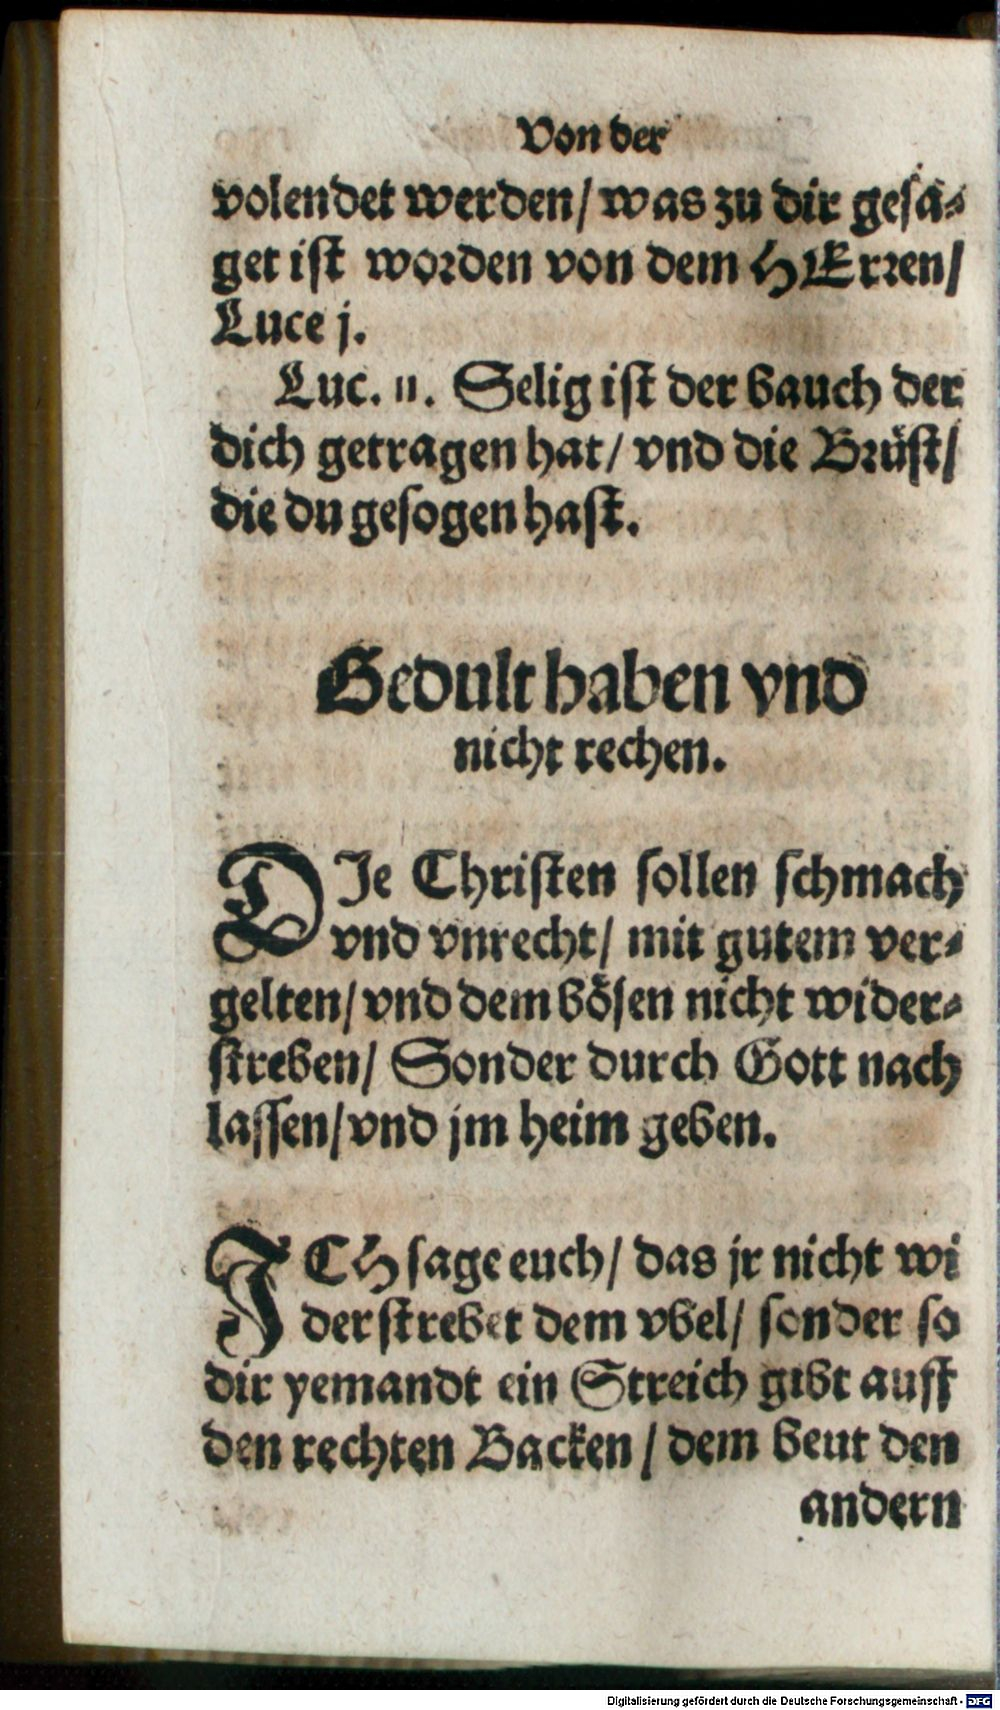 Von der
volendet werden/ was zu dir gesa-
get ist worden von dem HErren/
Luce j.
Luc. 11. Selig ist der bauch der
dich getragen hat/ vnd die Brüst/
die du gesogen hast.
Gedult haben vnd
nicht rechen.
DIe Christen sollen schmach
vnd vnrecht/ mit gutem ver-
gelten/ vnd dem bösen nicht wider-
streben/ Sonder durch Gott nach
lassen/ vnd jm heim geben.
ICH sage euch/ das jr nicht wi
derstrebet dem vbel/ sonder so
dir yemandt ein Streich gibt auff
den rechten Backen/ dem beut den
andern
Digitalisierung gefördert durch die Deutsche Forschungsgemeinschaft - DFG